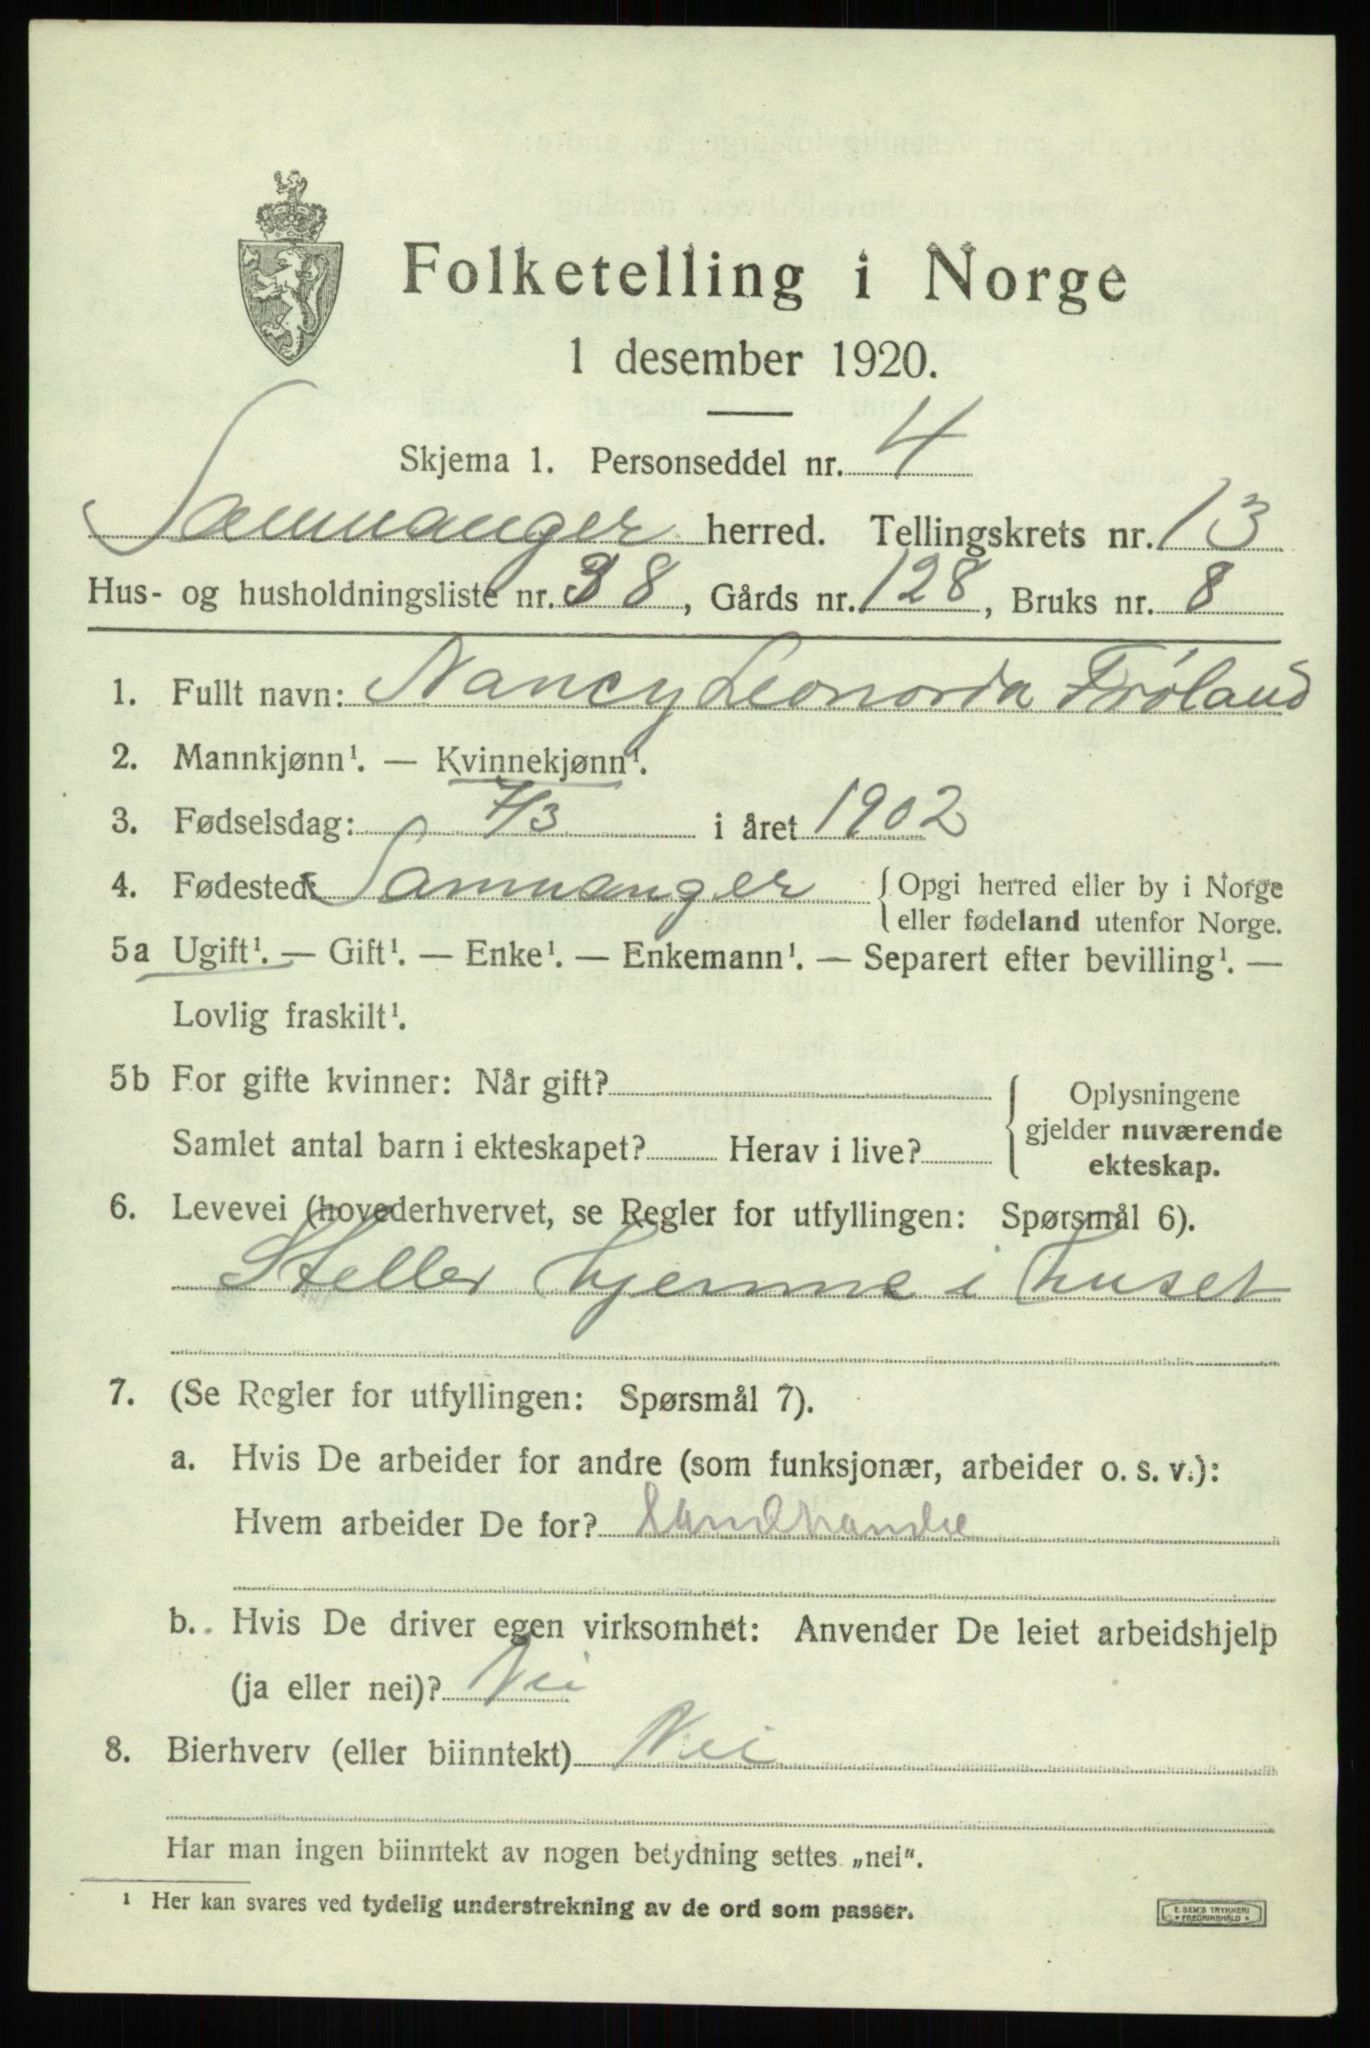 Folketelling i Norge
1 desember 1920.
Skjema 1. Personseddel nr. 4
Samnanger herred. Tellingskrets nr. 13
Hus- og husholdningsliste nr. 38, Gårds nr. 128, Bruks nr. 8
1. Fullt navn: Nancy Leonorda Frøland
2. Mannkjønn¹. — Kvinnekjønn¹.
3. Fødselsdag: 7/3 i året 1902
4. Fødested: Samnanger {Opgi herred eller by i Norge
eller fødeland utenfor Norge.
5a Ugift¹. — Gift¹. — Enke¹. — Enkemann¹. — Separert efter bevilling¹. —
Lovlig fraskilt¹.
5b For gifte kvinner: Når gift?
Samlet antal barn i ekteskapet? Herav i live?
{Oplysningene
gjelder nuværende
ekteskap.
6. Levevei (hovederhvervet, se Regler for utfyllingen: Spørsmål 6).
Steller hjemme i huset
7. (Se Regler for utfyllingen: Spørsmål 7).
a. Hvis De arbeider for andre (som funksjonær, arbeider o. s. v.):
Hvem arbeider De for? Landhandle
b. Hvis De driver egen virksomhet: Anvender De leiet arbeidshjelp
(ja eller nei)? Nei
8. Bierhverv (eller biinntekt) Nei
Har man ingen biinntekt av nogen betydning settes „nei".
¹ Her kan svares ved tydelig understrekning av de ord som passer.
E. SEM'S TRYKKERI
* FREDRIKSHALD *